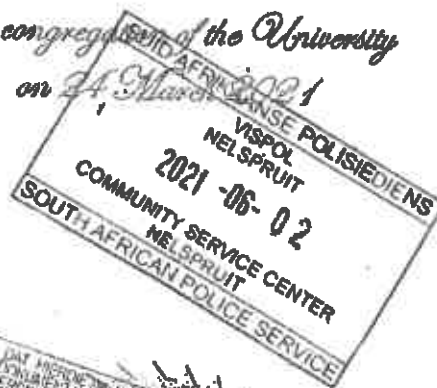 congregation of the University
on 24 March 2021
SUID AFRIKAANSE POLISIEDIENS
VISPOL
NELSPRUIT
2021 -06- 02
COMMUNITY SERVICE CENTER
NELSPRUIT
SOUTH AFRICAN POLICE SERVICE
DAT HIERDIE
DOKUMENT